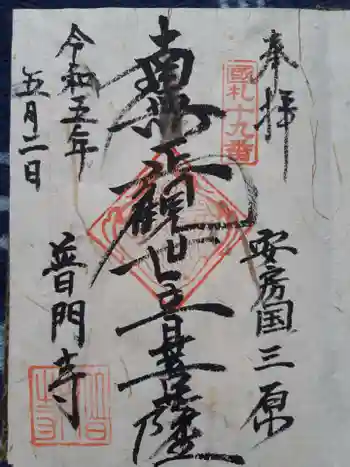 奉拝
國札十九番
安房国三原
南無正観世音菩薩
令和五年
五月二日
普門寺